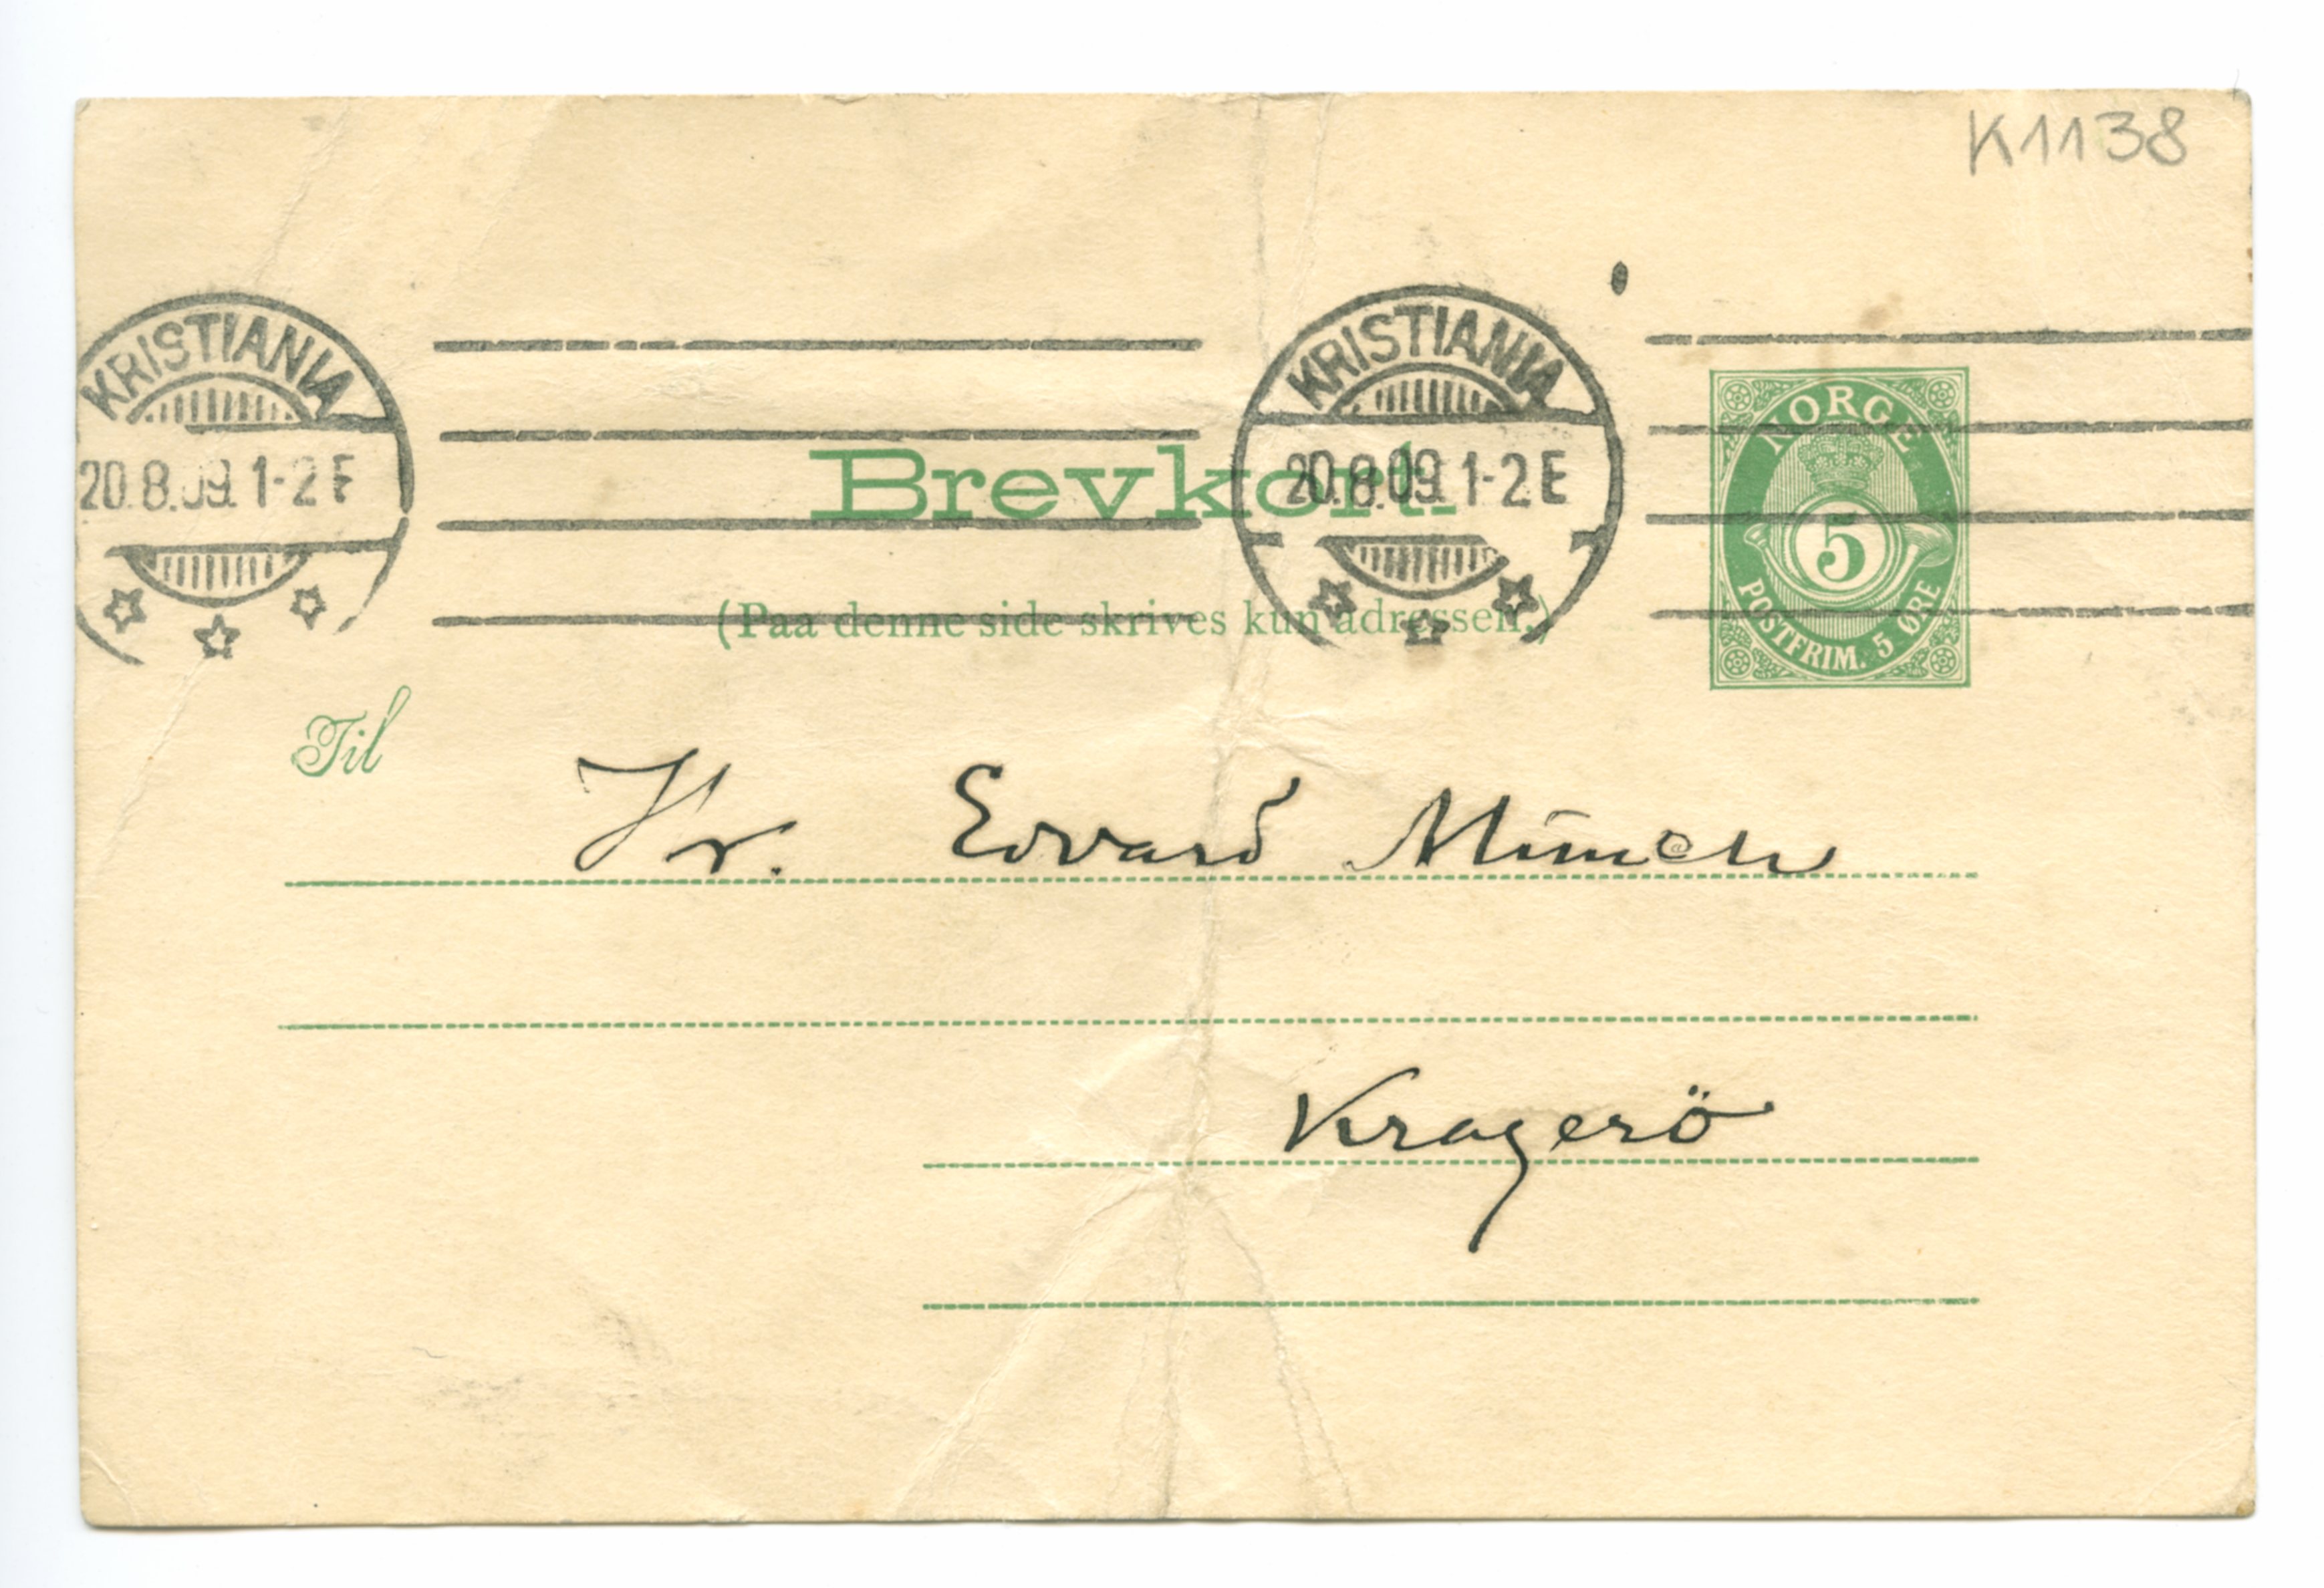 K1138
KRISTIANIA
20.8.09. 1-2 E
KRISTIANIA
20.8.09. 1-2 E
Brevkort.
(Paa denne side skrives kun adressen.)
NORGE
5
POSTFRIM. 5 ØRE
Til
Hr. Edvard Münch
Kragerö